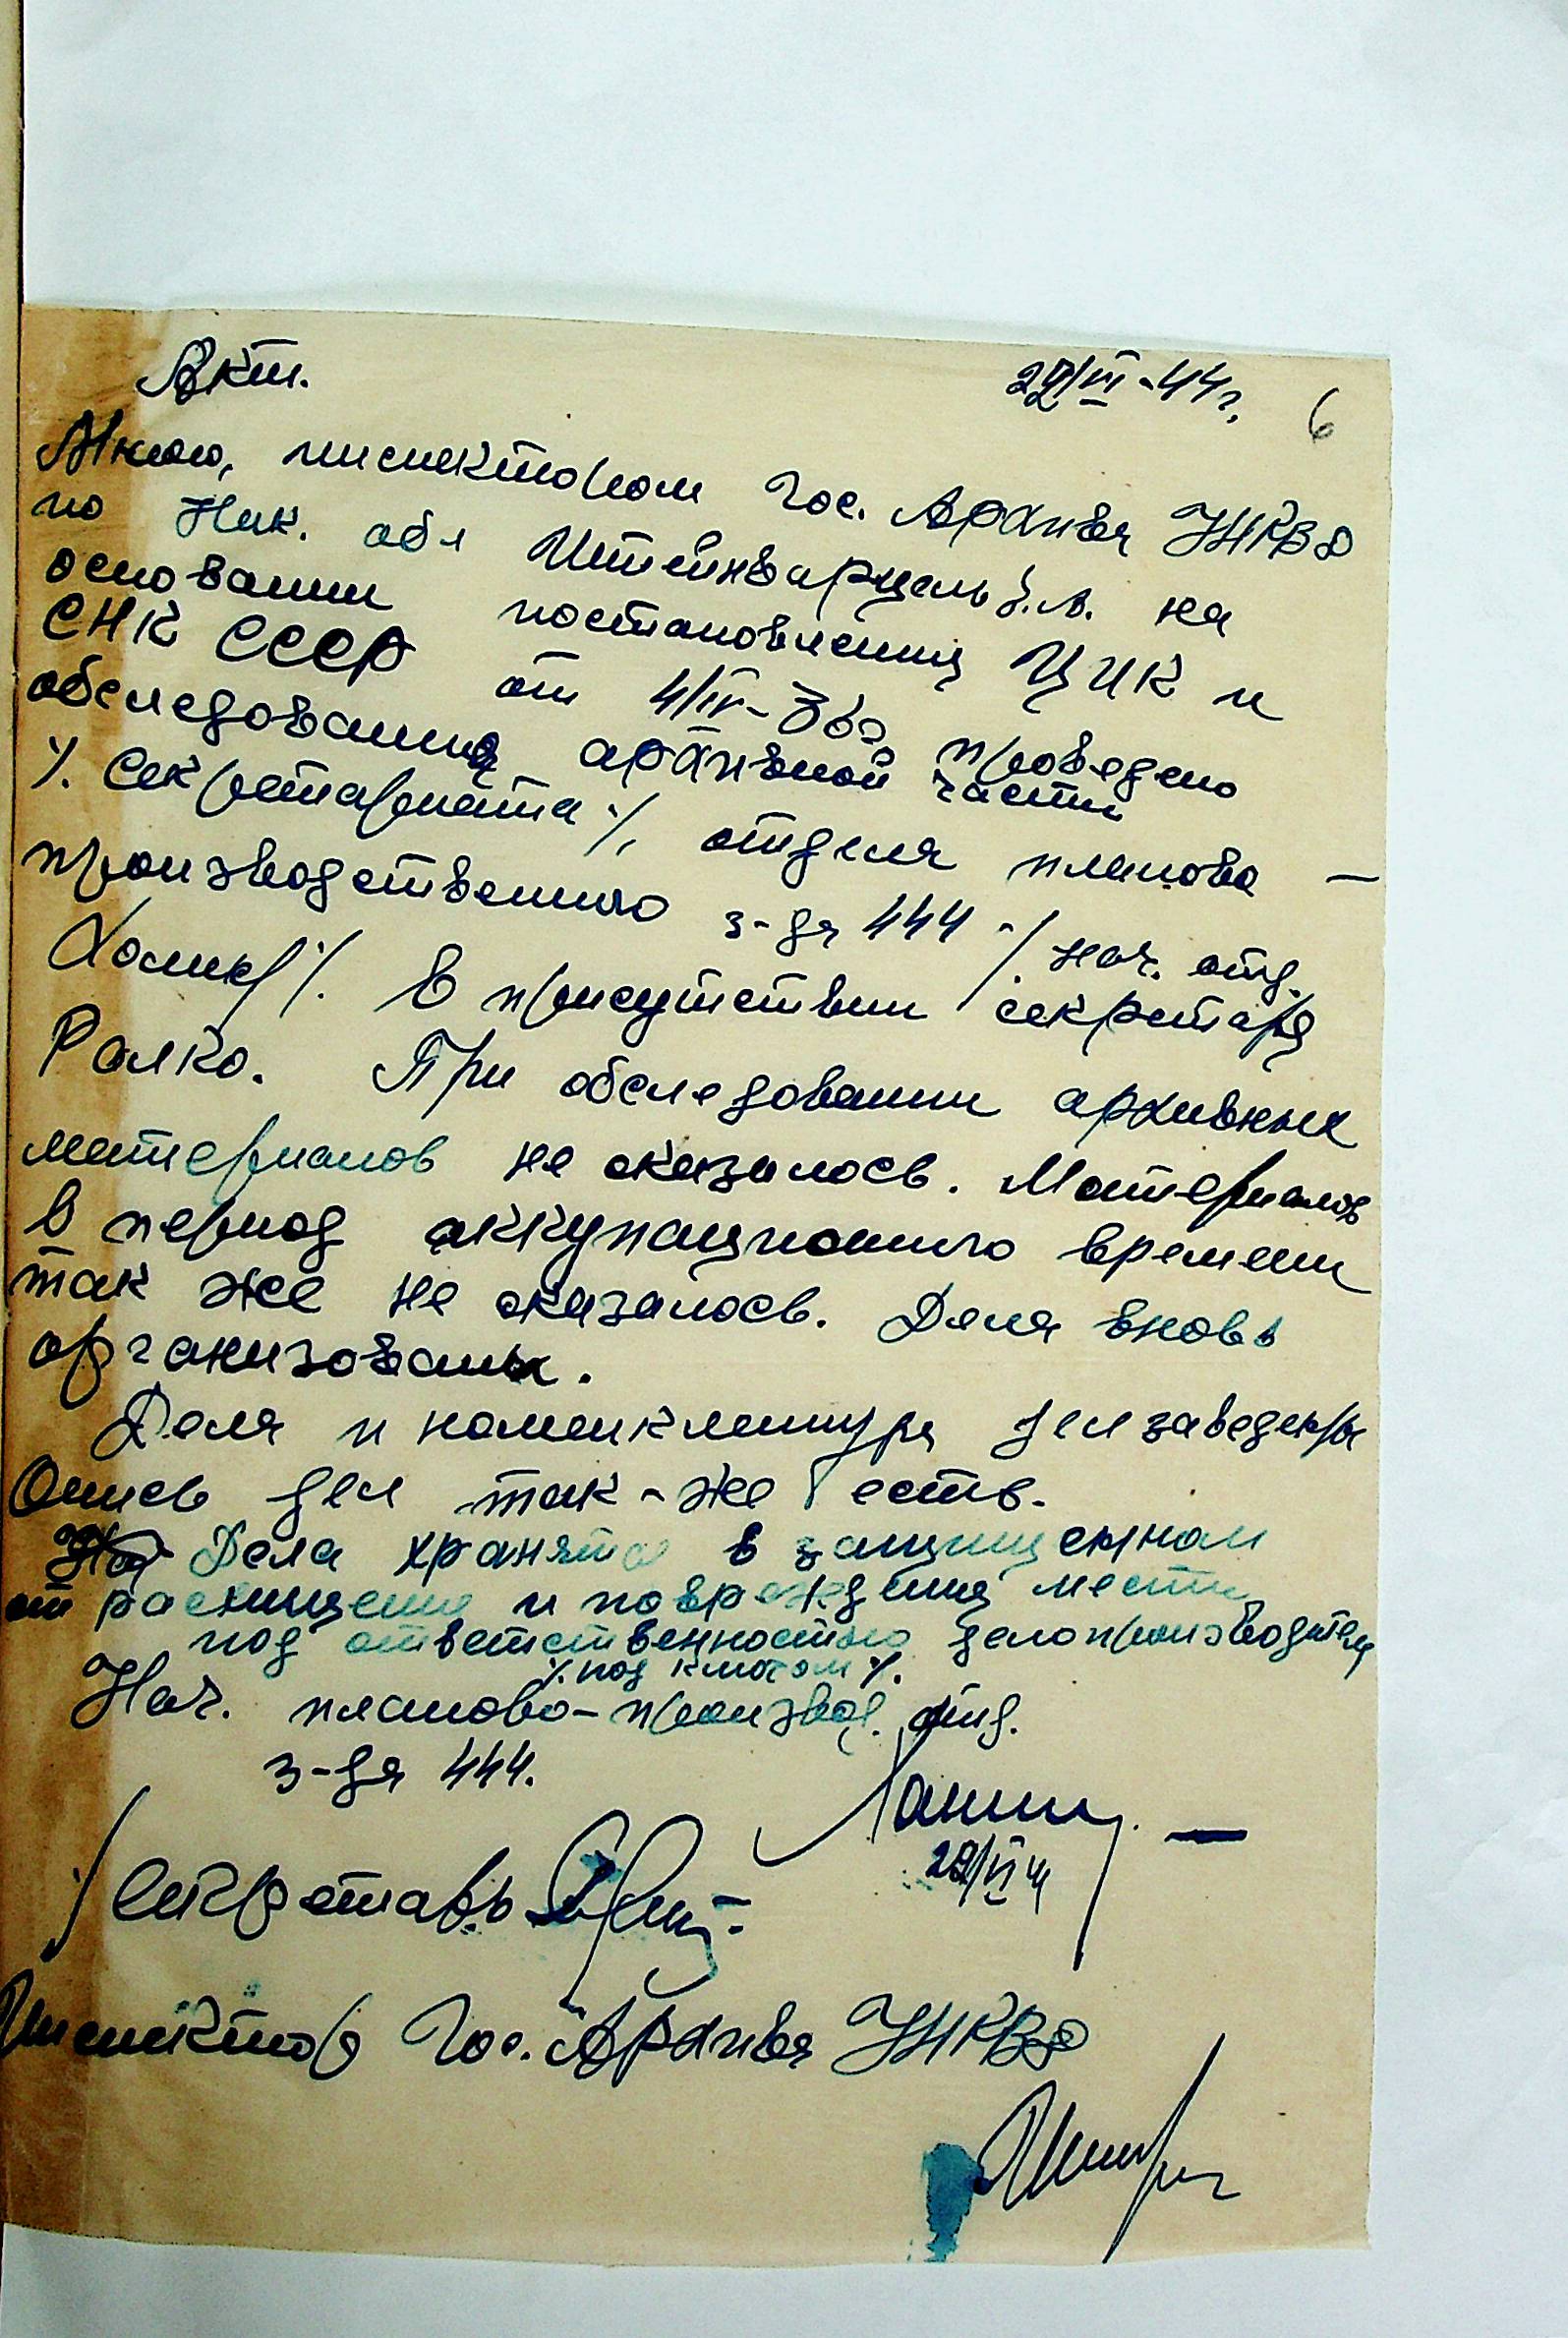 Акт. 29/VI-44 г. 6
Мною, инспектором Гос. Архива УНКВД
по Ник. обл Штейнварцель на
основании постановления ЦИК и
СНК СССР от 4/IV-36г проведено
обследование архивной части
% Секретариата % отдела планово —
производственного з-да 444 % нач. отд.
% В присутствии секретаря
Ралко. При обследовании архивных
материалов не оказалось. Материалов
в период аккупационного времени
так же не оказалось. Дела вновь
организованы.
Дела и номенклатура дел заведены
Опись дел так-же есть.
Дела хранятся в защищенном
от расхищения и повреждения месте
под ответственностью делопроизводителя
% под ключом %.
Нач. планово-произвой. отд.
з-да 444.
29/VI 44
Секретарь
Инспектор Гос. Архива УНКВД